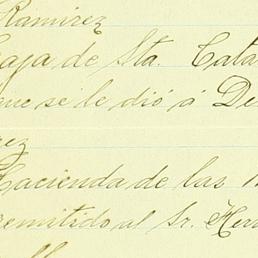 Ramirez
aja de Sta. Cata
que se le dió á De
rez
Hacienda de las
remitido al Sr. Herr